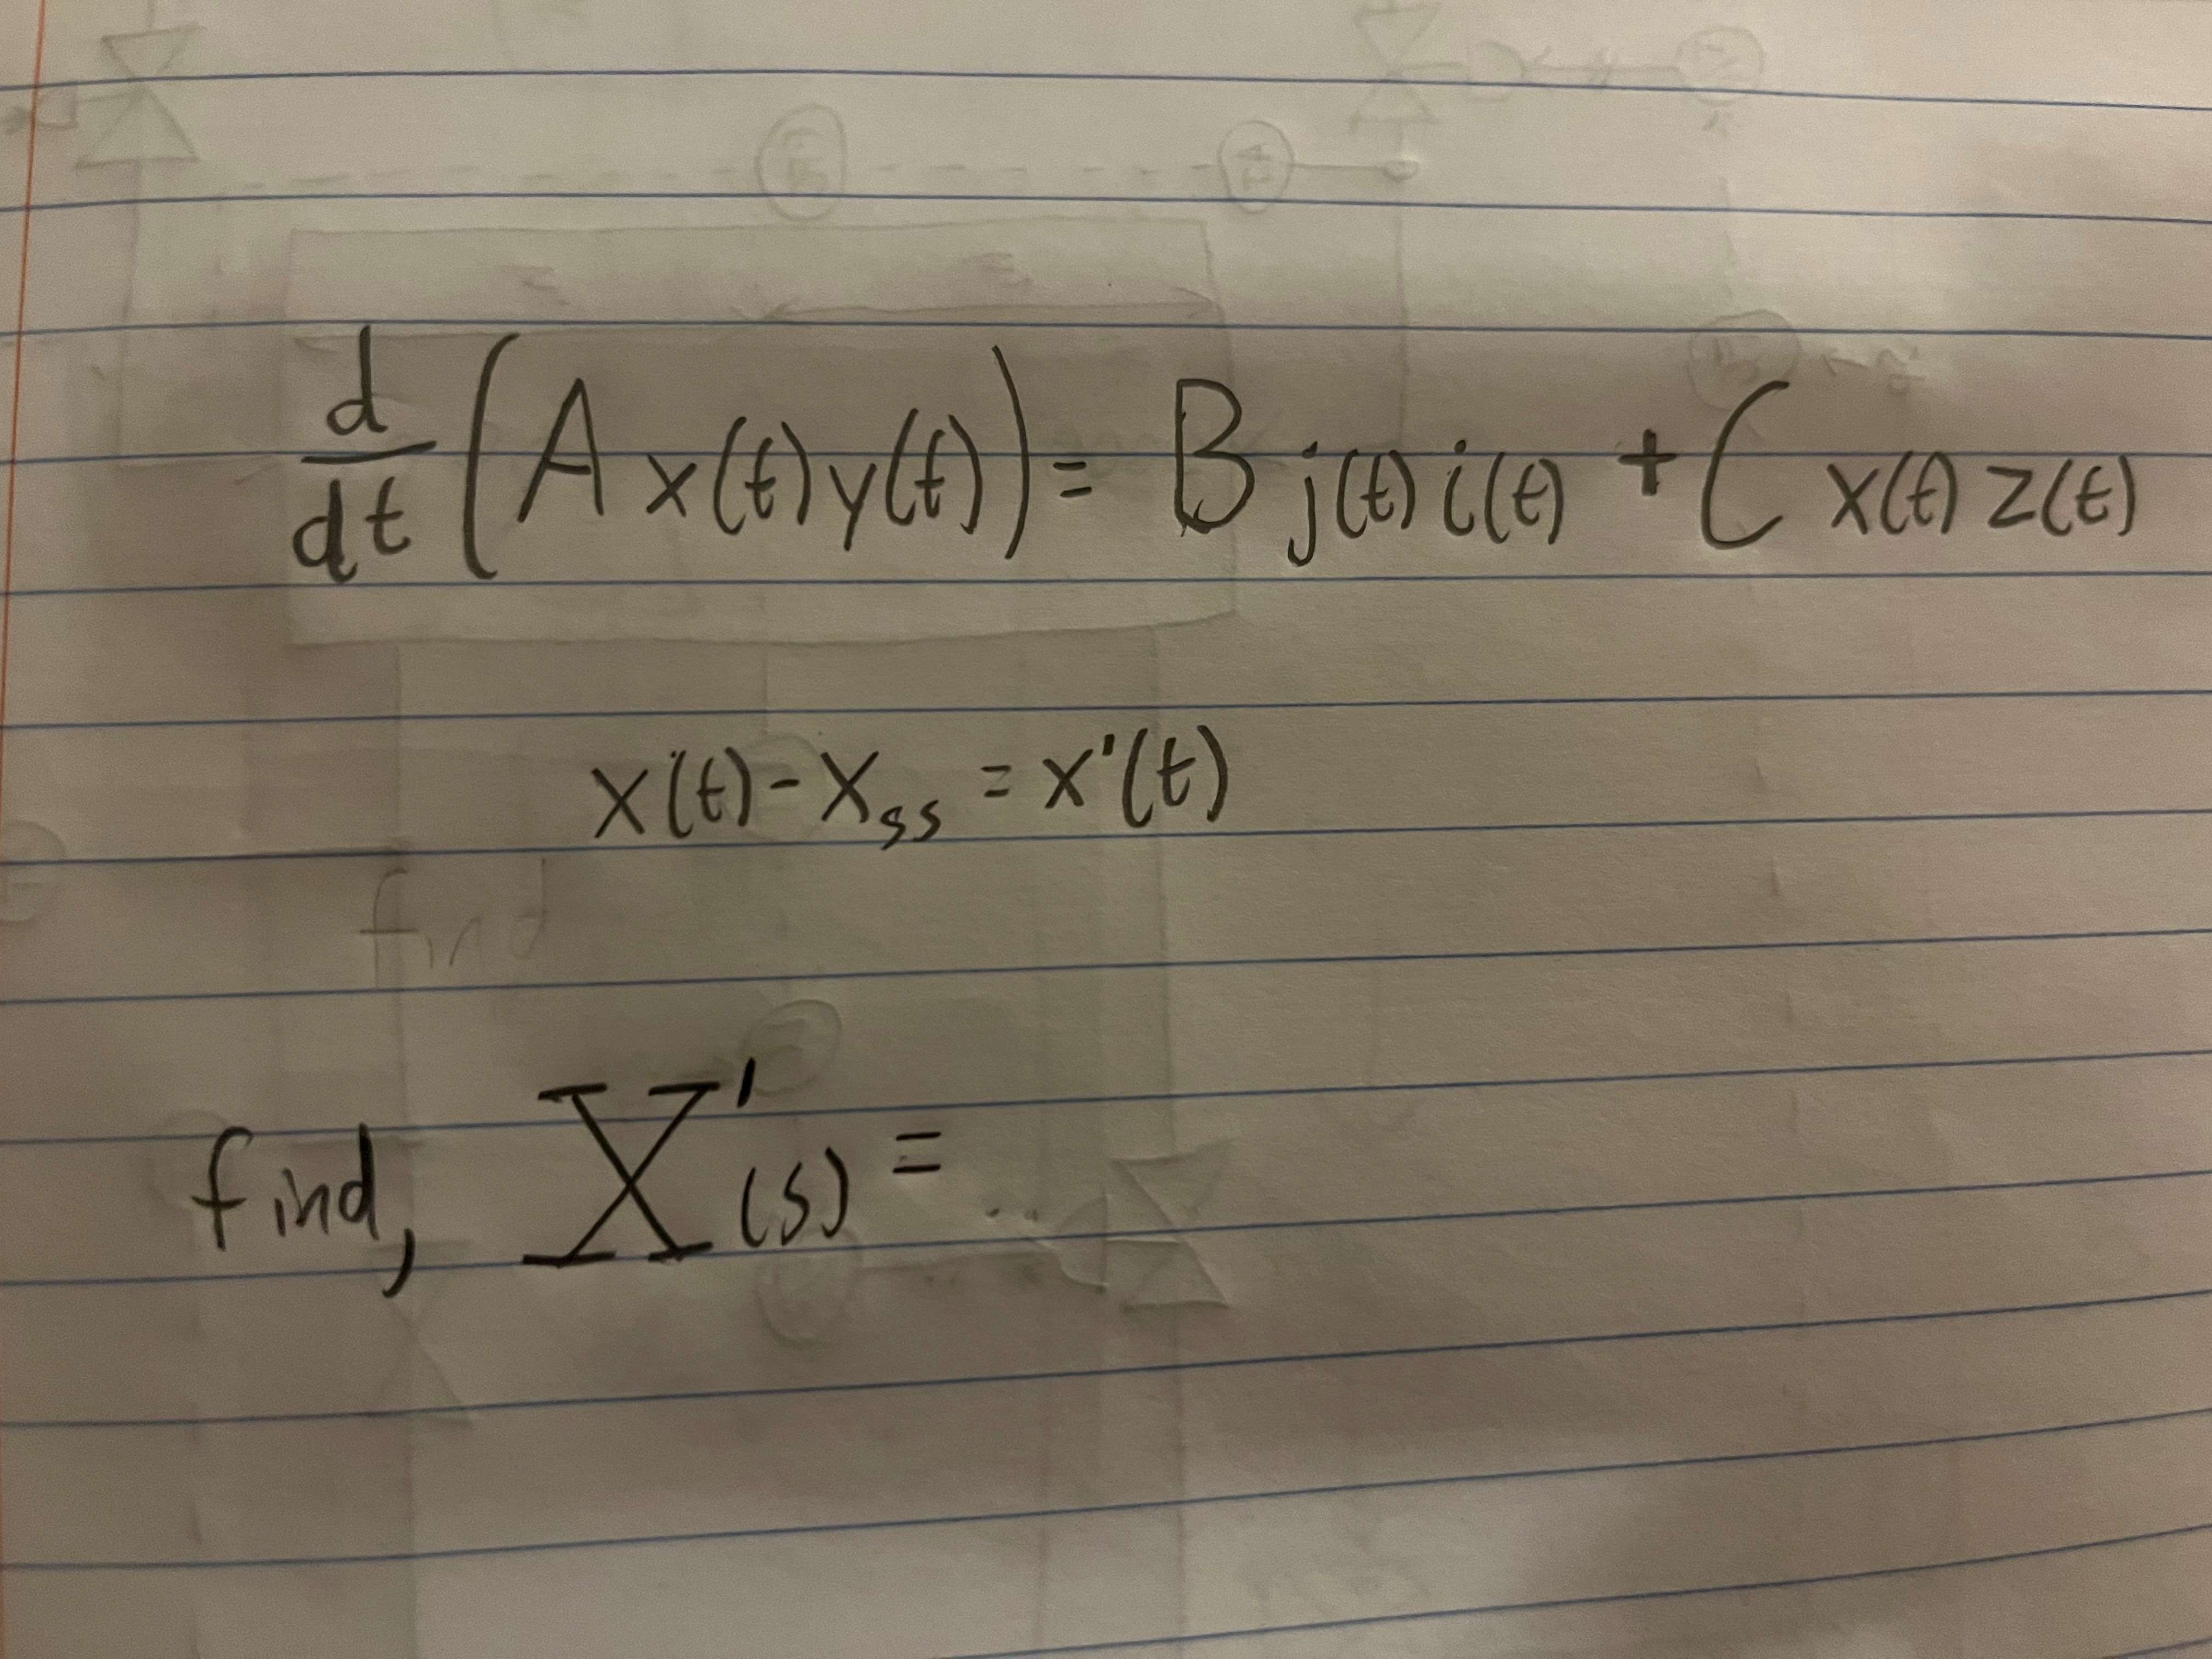 d/dt (A x(t) y(t)) = B j(t) i(t) + C x(t) z(t)
x(t) - x_ss = x'(t)
find
find, X'(s) =